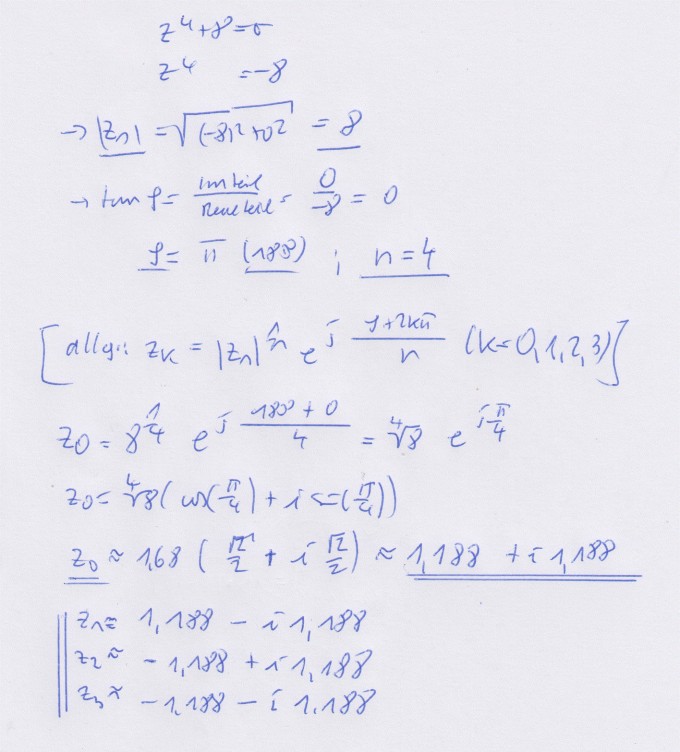 z⁴+8=0
z⁴ =-8
→ |z₁| = √((-8)²+0²) = 8
→ tan φ = Imteil/Realteil = 0/-8 = 0
φ = π (180°) ; n=4
[allg.: z_K = |z₁|^(1/n) e^(j (φ+2kπ)/n) (K=0,1,2,3)]
z0 = 8^(1/4) e^(j (180°+0)/4) = ⁴√8 e^(i π/4)
z0 = ⁴√8(cos(π/4) + i sin(π/4))
z0 ≈ 1,68 (√2/2 + i √2/2) ≈ 1,188 + i 1,188
z₁ ≈ 1,188 - i 1,188
z₂ ≈ -1,188 + i 1,188
z₃ ≈ -1,188 - i 1.188